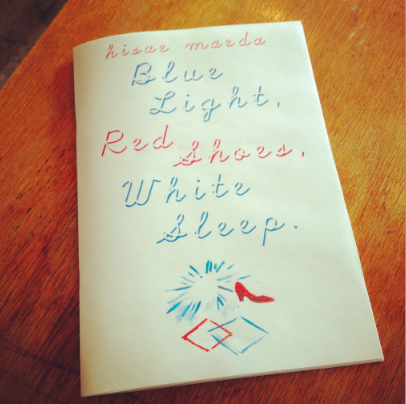 hisae maeda
Blue
Light,
Red
Shoes,
White
Sleep.